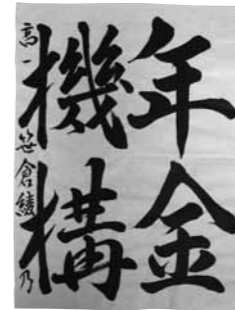 年金
機構
高一 笹倉綾乃